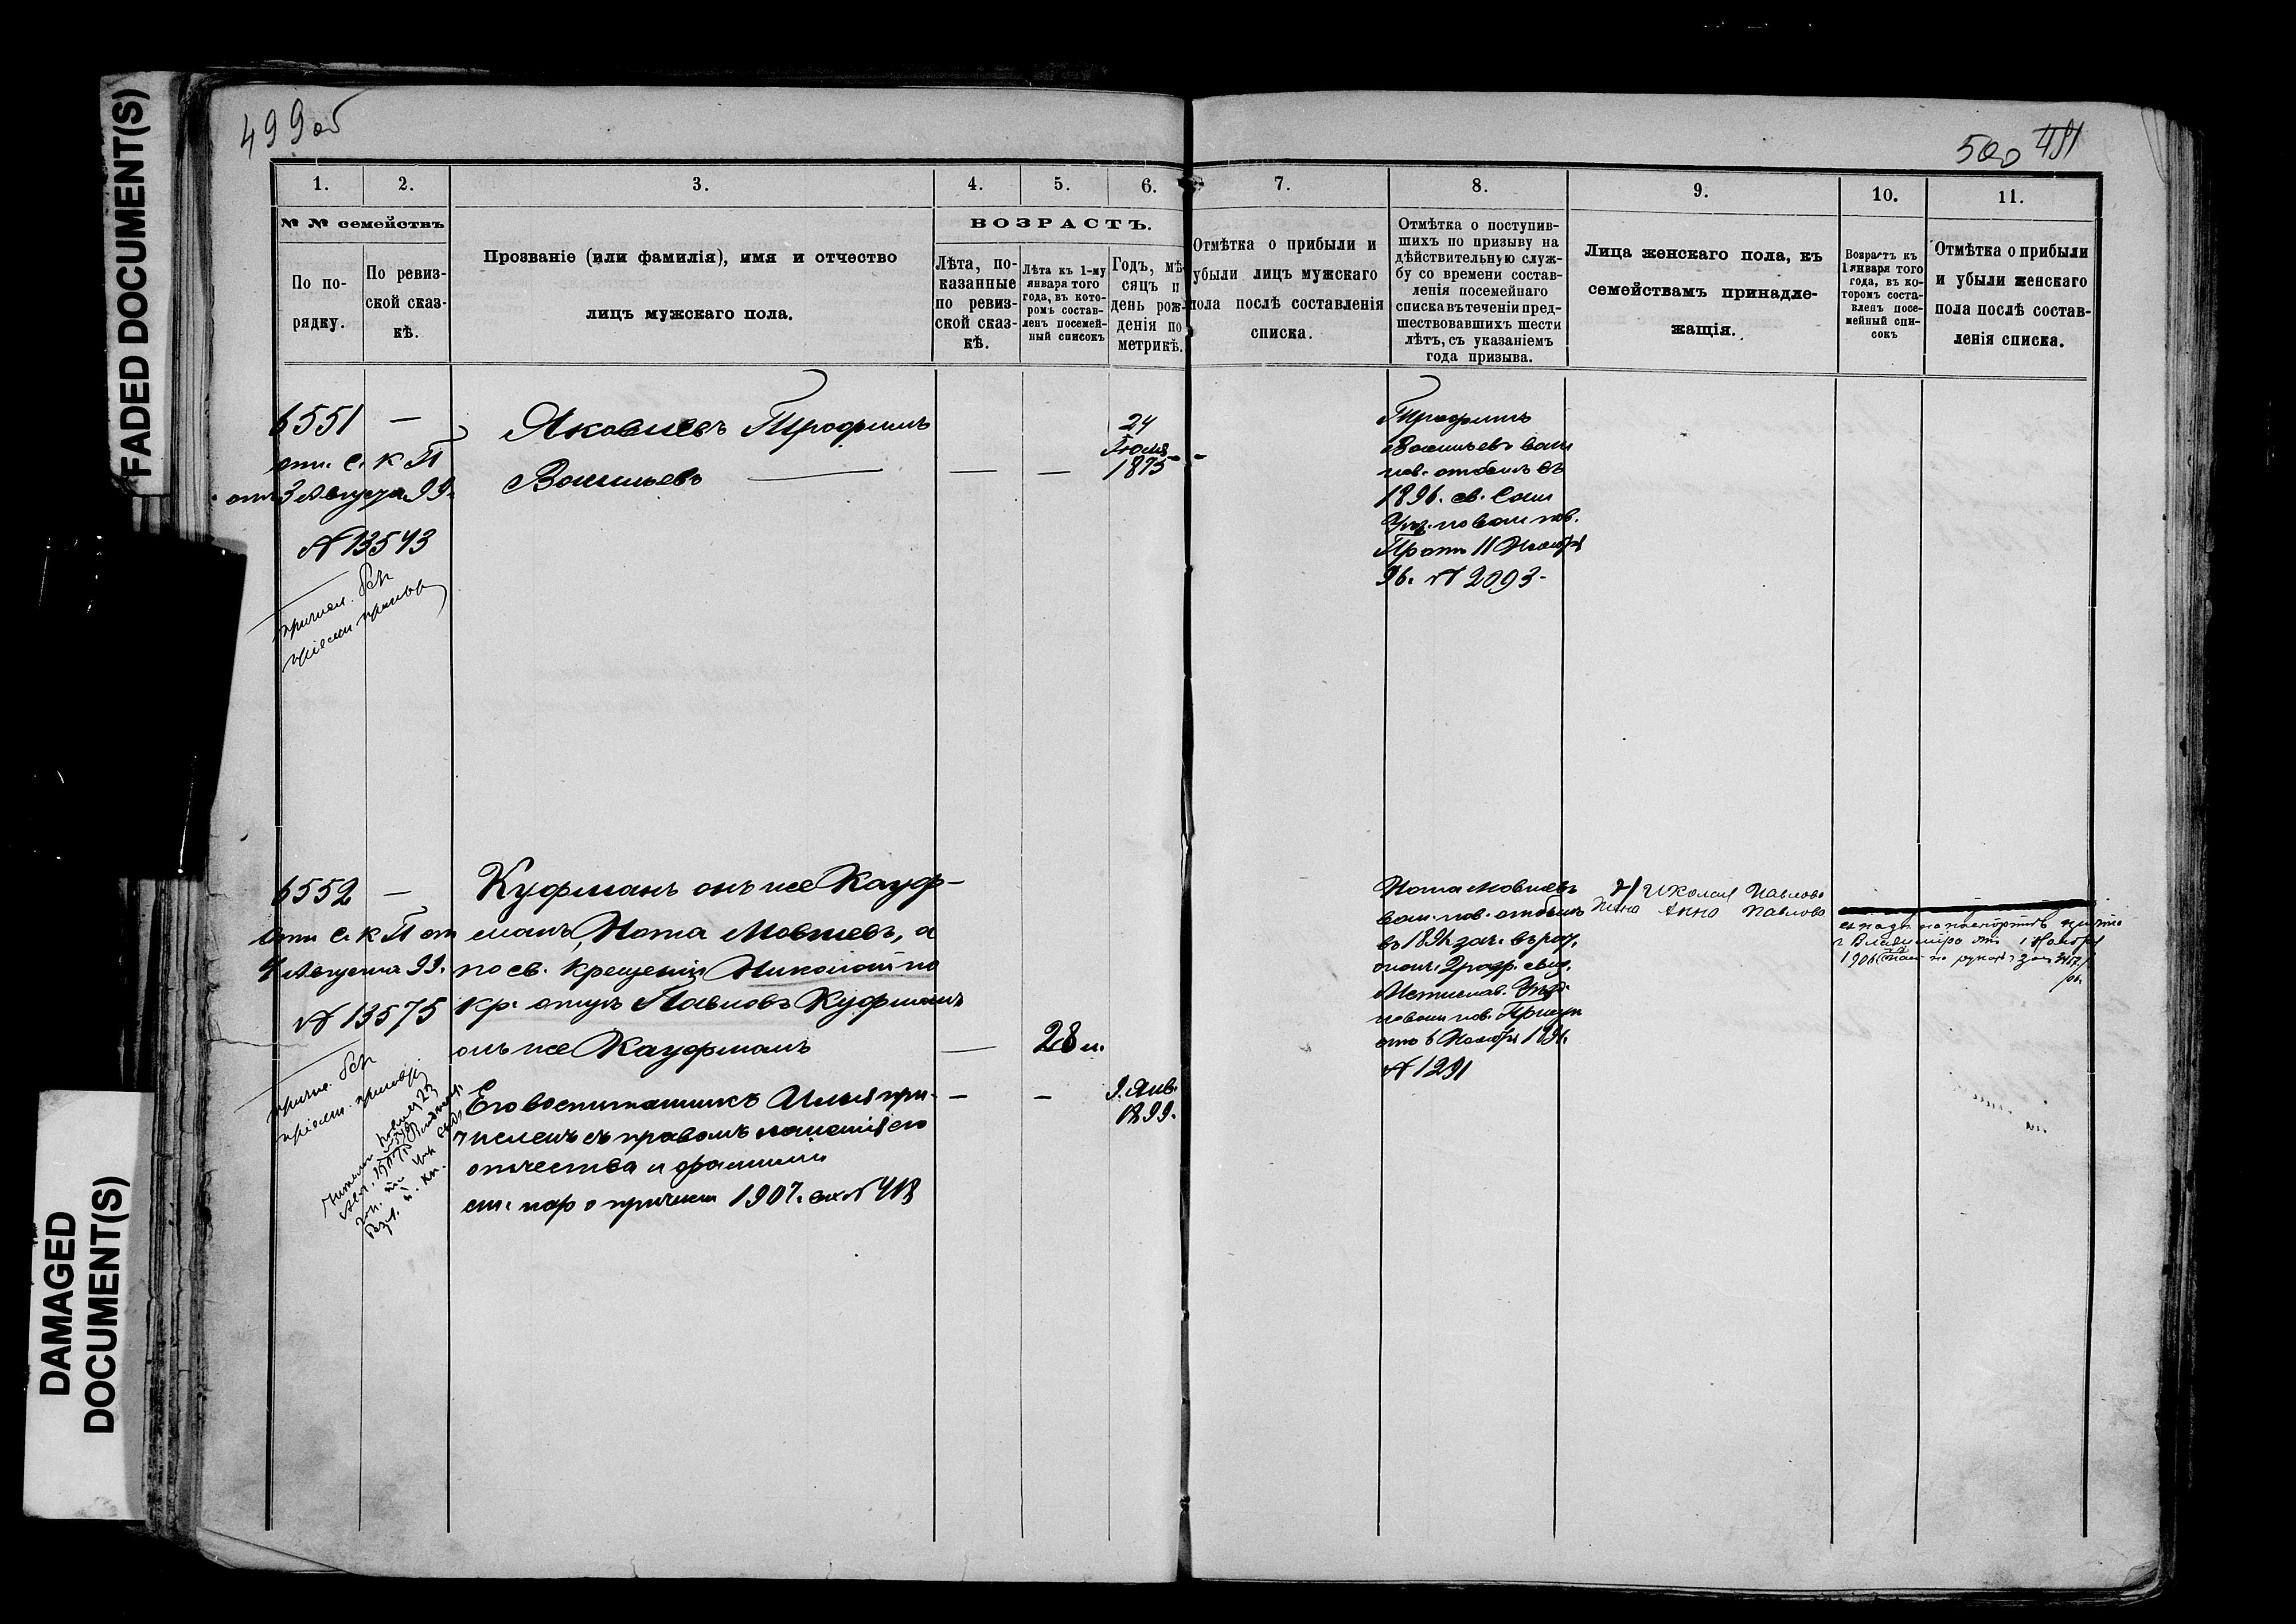 FADED DOCUMENT(S)
DAMAGED
DOCUMENT(S)
499об
500 481
1.
2.
3.
4.
5.
6.
7.
8.
9.
10.
11.
№ № семействъ
По по-
рядку.
По ревиз-
ской сказ-
кѣ.
Прозваніе (или фамилія), имя и отчество
лицъ мужскаго пола.
ВОЗРАСТЪ.
Лѣта, по-
казанные
по ревиз-
ской сказ-
кѣ.
Лѣта къ 1-му
января того
года, въ кото-
ромъ состав-
ленъ посемей-
ный списокъ
Годъ, мѣ-
сяцъ и
день рож-
денія по
метрикѣ.
Отмѣтка о прибыли и
убыли лицъ мужскаго
пола послѣ составленія
списка.
Отмѣтка о поступив-
шихъ по призыву на
дѣйствительную служ-
бу со времени состав-
ленія посемейнаго
списка въ теченіи пред-
шествовавшихъ шести
лѣтъ, съ указаніемъ
года призыва.
Лица женскаго пола, къ
семействамъ принадле-
жащія.
Возрастъ къ
1 января того
года, въ ко-
торомъ соста-
вленъ посе-
мейный спи-
сокъ
Отмѣтка о прибыли
и убыли женскаго
пола послѣ состав-
ленія списка.
6551 —
отн. С. К П
отъ 3 Августа 99.
№ 13543
причисл. без
пріемн. приговор
Яковлевъ Трофимъ
Васильевъ
— —
24
Іюля
1875
Трофимъ
Васильевъ воин
пов. отбылъ въ
1896. св.
Уѣз. по воин пов.
Пр отъ 11 Ноября
96. № 2093-
6552 —
Отн С. К П от
4 Августа 99.
№ 13575
причис. без
пріемн. приговор
Куфманъ онъ же Кауф-
манъ, Нота Мовшевъ, а
по св. крещеніи Николай по
кр. отцу Павловъ Куфманъ
онъ же Кауфманъ
— 28 л.
Его воспитанникъ Илья при-
численъ съ правомъ ношенія его
отчества и фамиліи
см. нар о причисл 1907. вх № 418
— —
9. Янв.
1899.
Нота Мовшевъ
воин. пов. отбылъ
въ 1891 зач. въ рат.
опол. 2 разр. свид.
Мстислав. Уѣзд.
по воин пов. Присут
отъ 6 Ноября 1891.
№ 1291
Николая Павлова
жена Анна Павлова
1 Ноября
1906